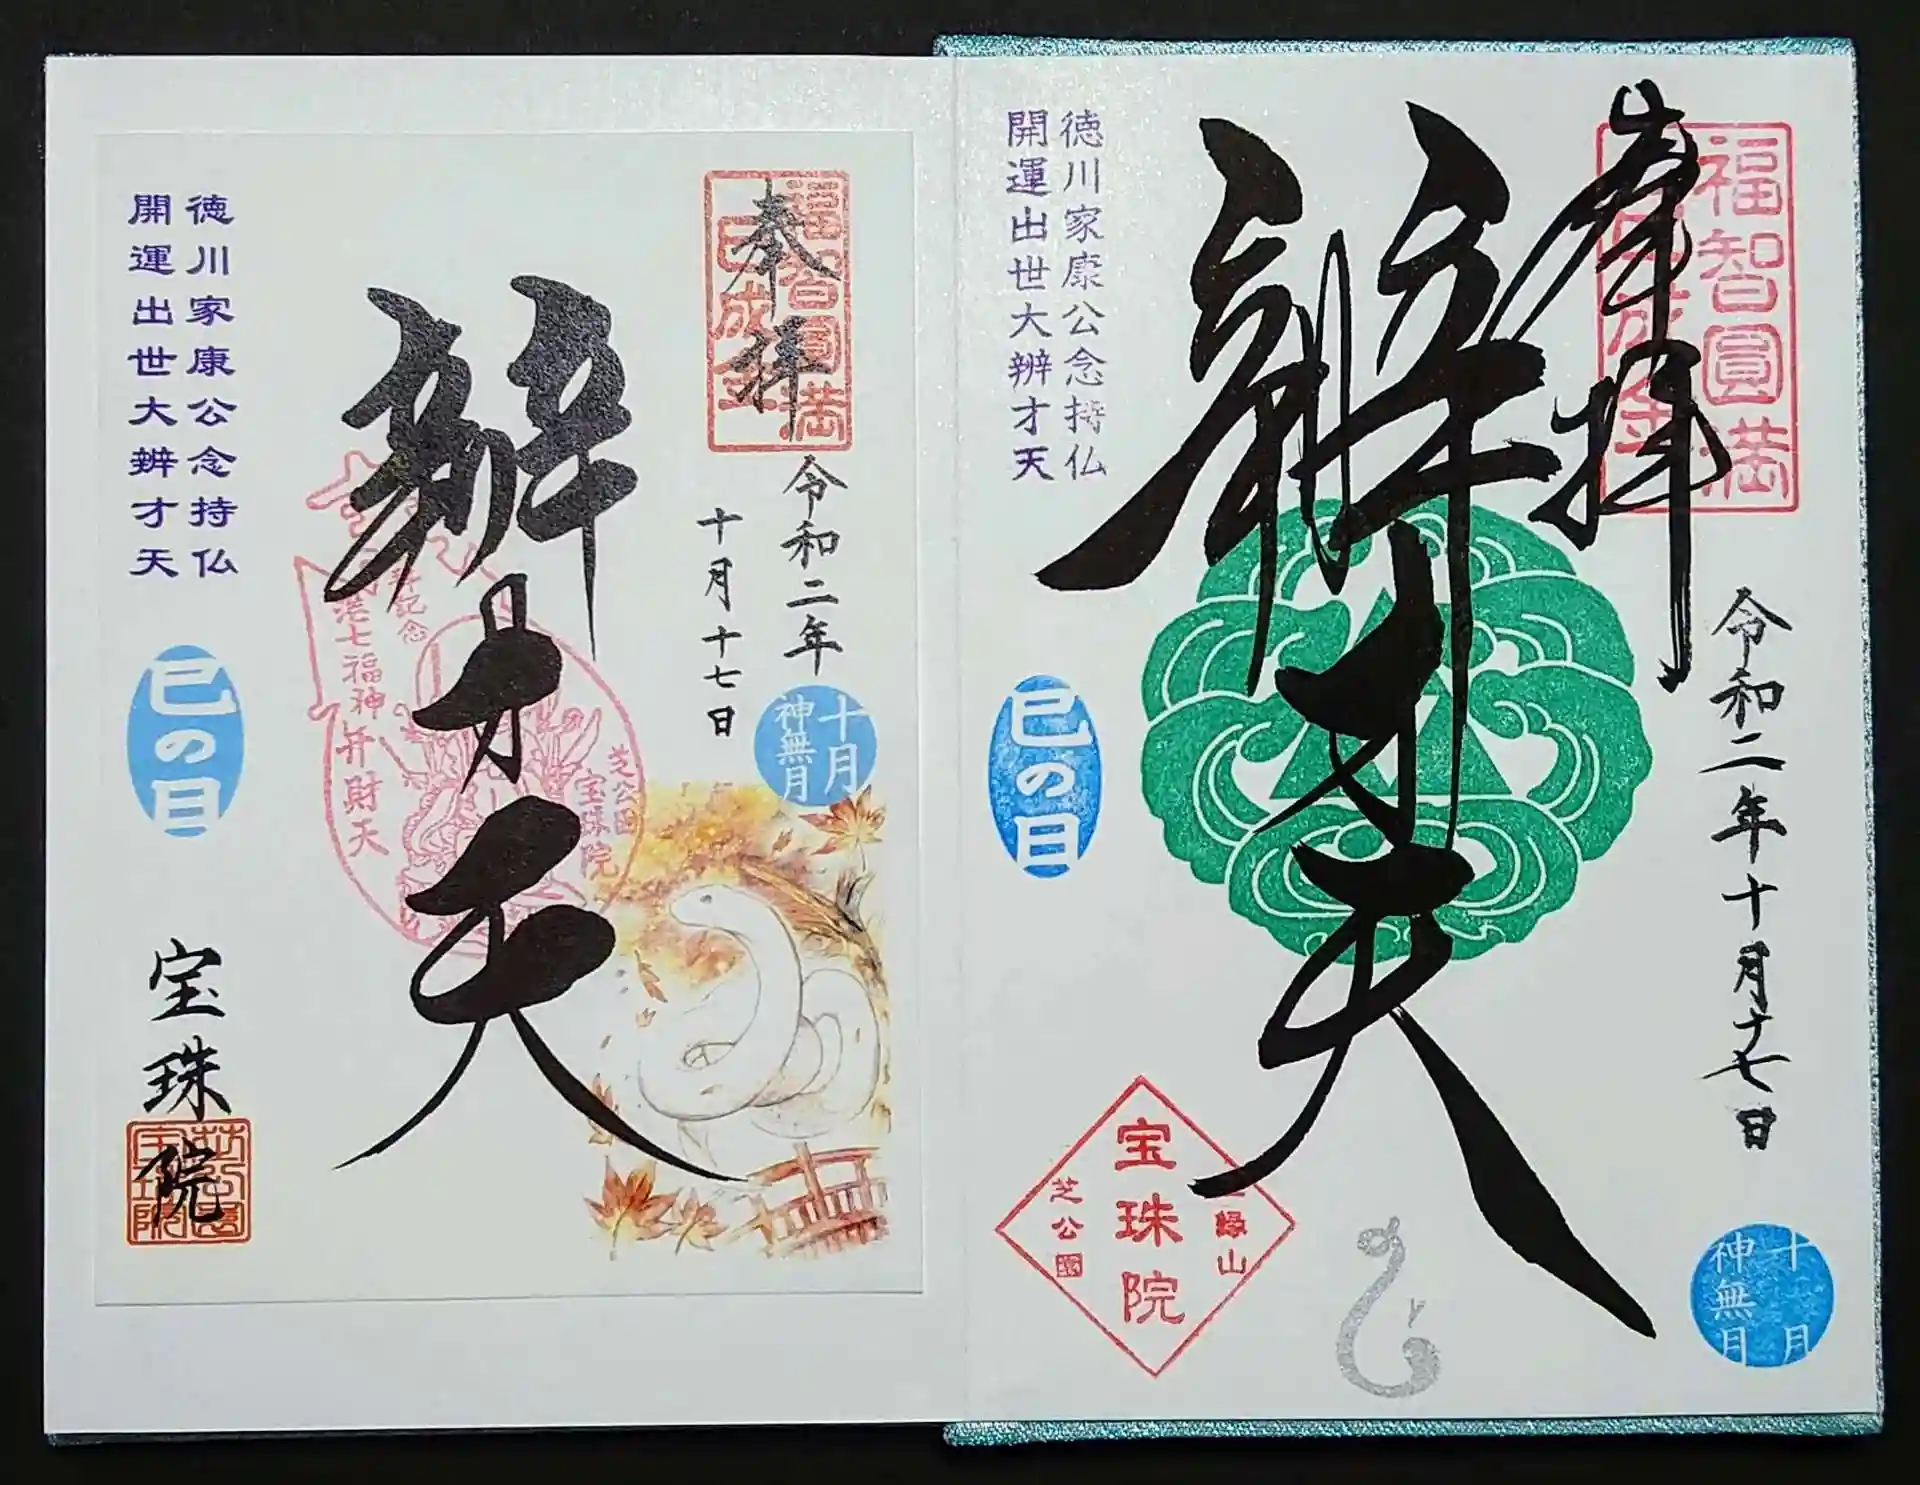 奉拝
福智圓満
令和二年十月十七日
十月
神無月
辨才天
徳川家康公念持仏
開運出世大辨才天
巳の日
縁山
宝珠院
芝公園
奉拝
福智圓満
巳成金
令和二年
十月十七日
十月
神無月
辨才天
芝公園
宝珠院
港七福神弁財天
徳川家康公念持仏
開運出世大辨才天
巳の日
宝珠院